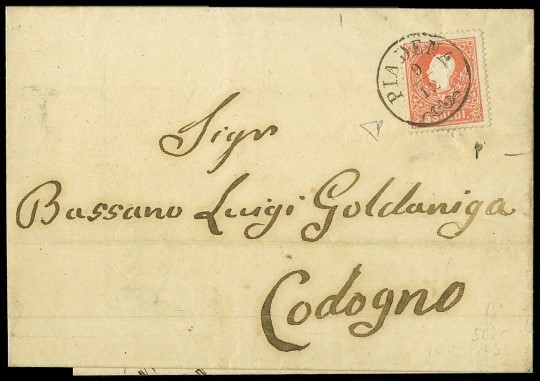 PIADENA
9
11
SOLDI
Sigr
Bassano Luigi Goldaniga
Codogno
P